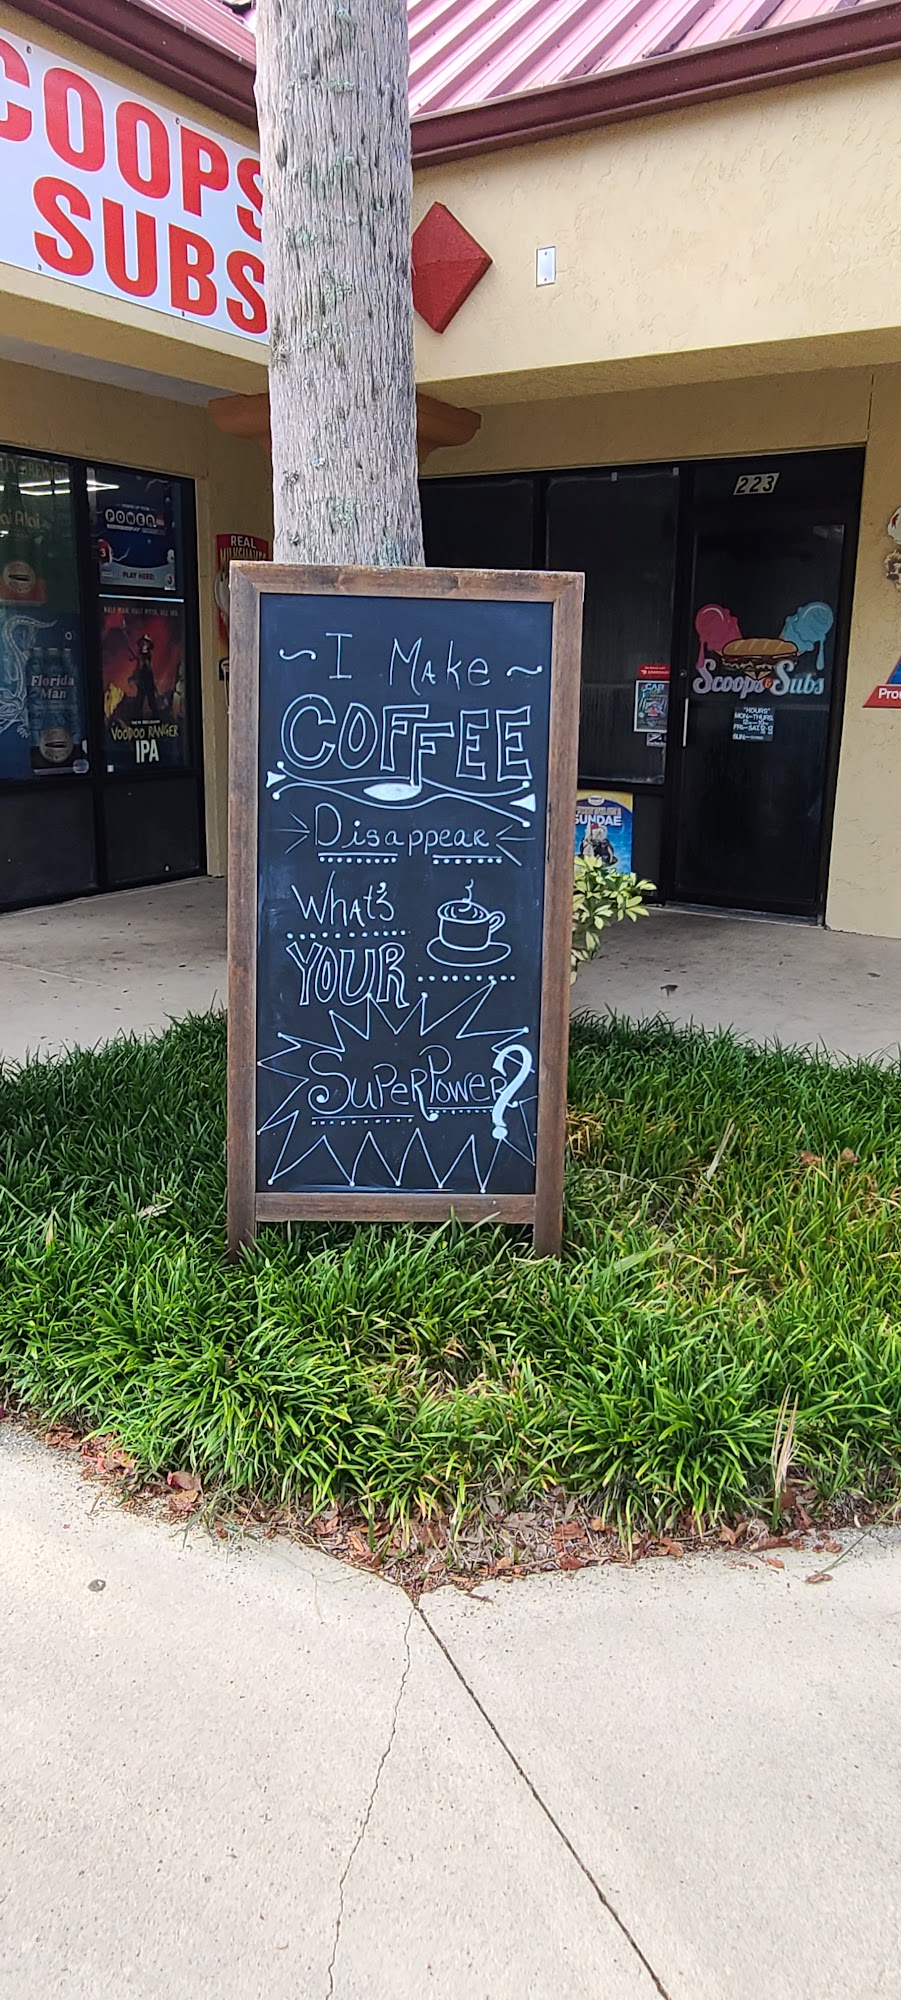 COOPS
SUBS
POWER
PLAY HERE!
Florida
Man
VOODOO RANGER
IPA
REAL
MILKSHAKES
223
Scoops & Subs
"HOURS"
MON-THURS
SUNDAE
~ I Make ~
COFFEE
Disappear
What's
YOUR
SuperPower?